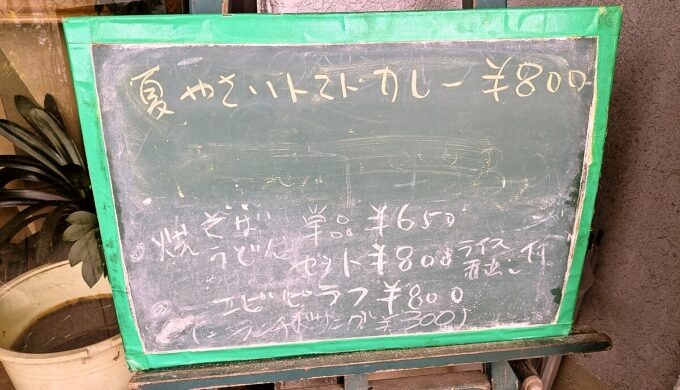 夏やさいトマトカレー ¥800
焼 そば 単品 ¥650
うどん セット ¥800 ライス 付
エビピラフ ¥800
ランチ ¥300)